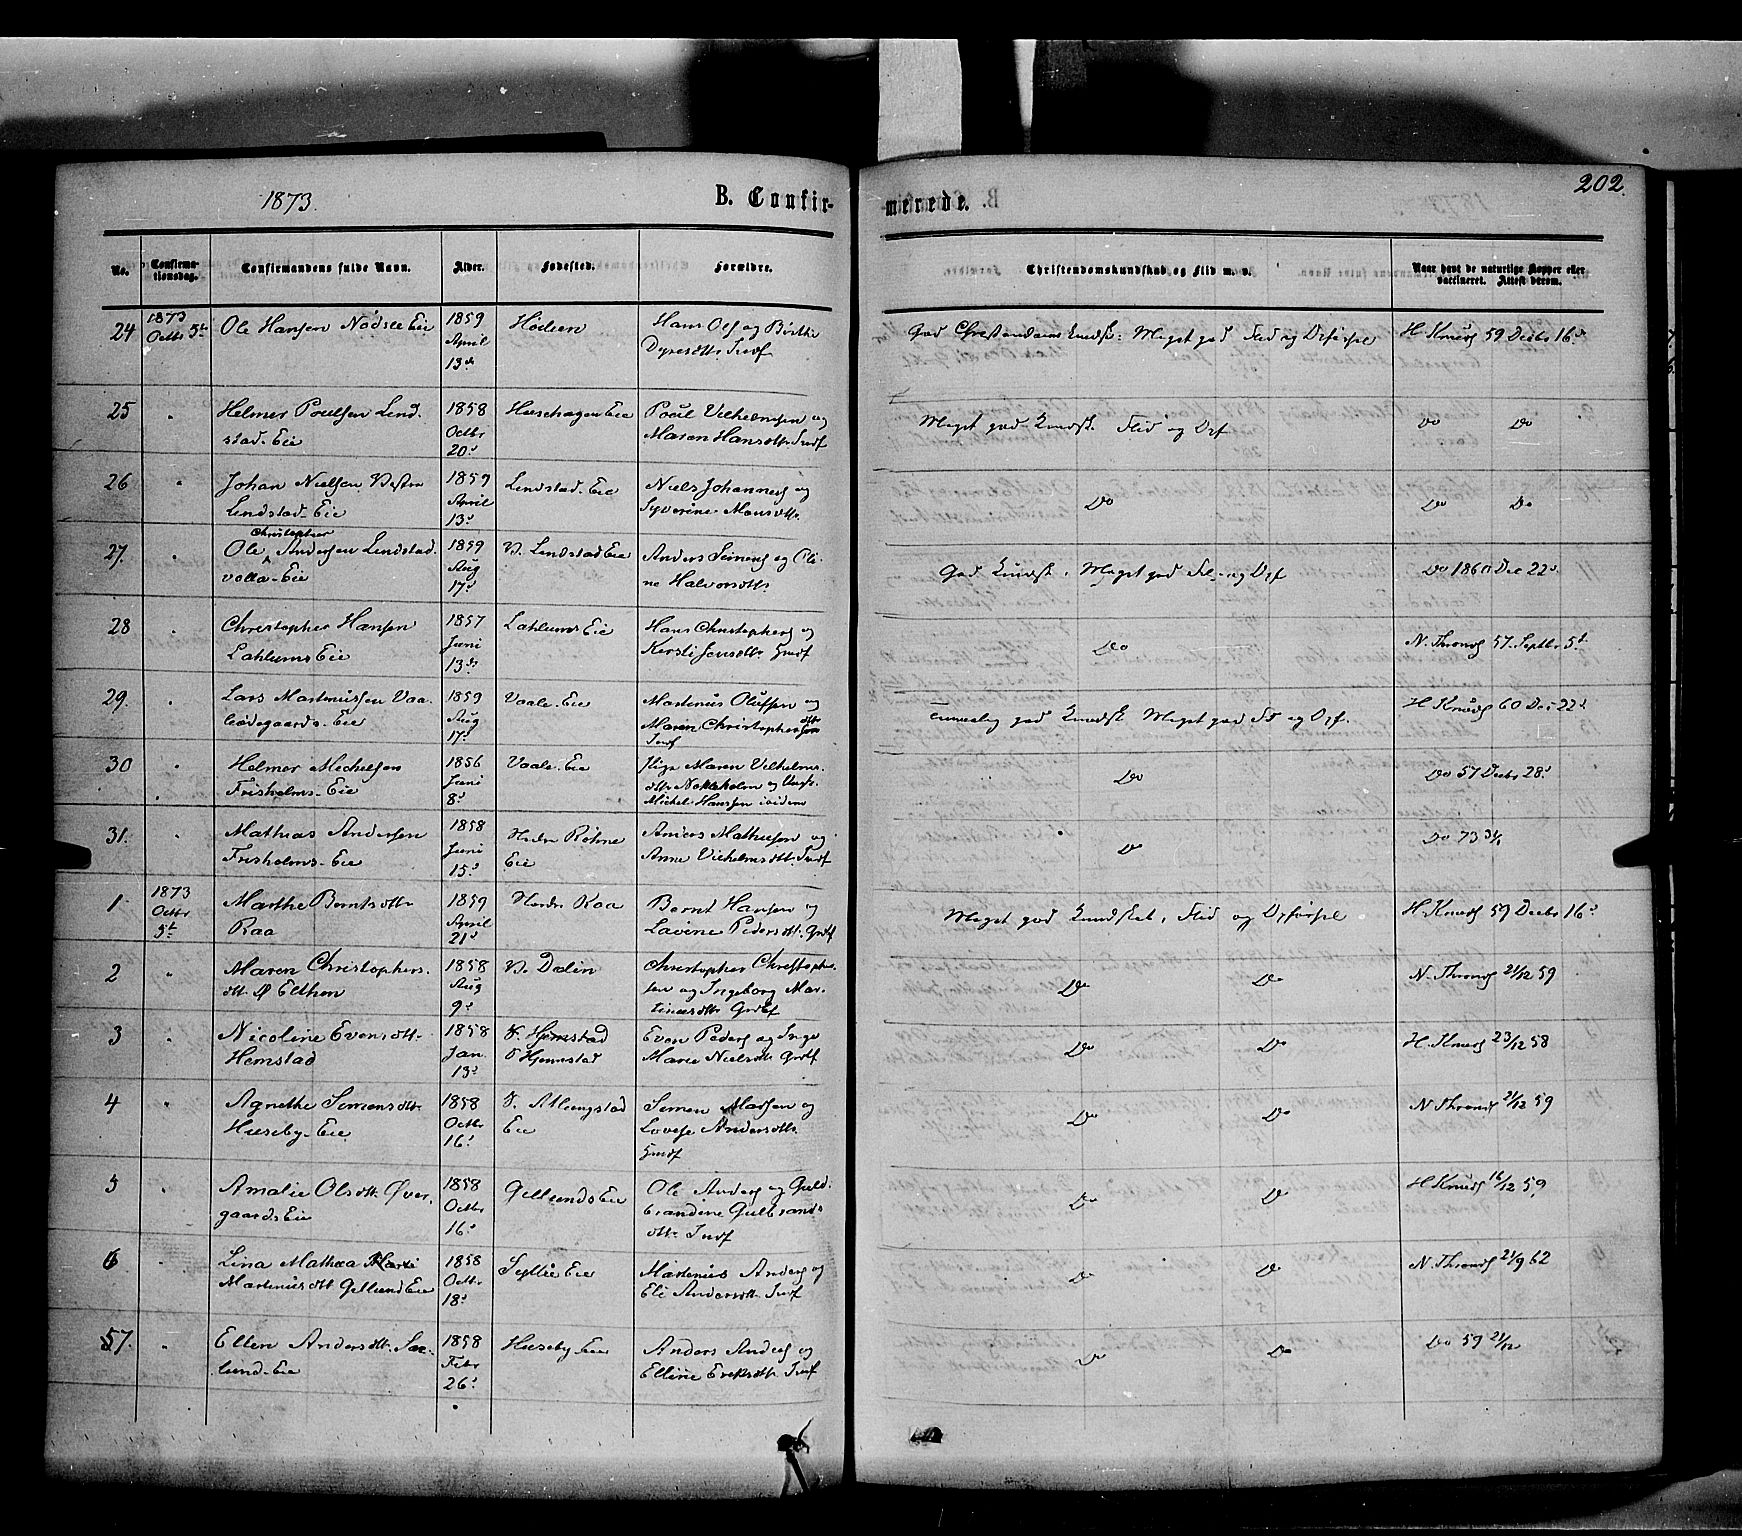 1873.
B. Confir-
merede.
202.
No.
Confirma-
tionsdag.
Confirmandens fulde Navn.
Alder.
Fødested.
Forældre.
Christendomskundskab og Flid m. v.
Naar havt de naturlige Kopper eller
vaccineret. Attest derom.
24
1873
Octbr 5t
Ole Hansen Nødsle Eie
1859
April
13de
Hans Ols og Birthe
Inds
God Christendoms Kundsk: Meget god Flid og Opførsel
H. Knuds 59 Decbr 16d
25
Helmer Poulsen Lind-
stad-Eie
1858
Octbr
20d
Huschagen Eie
Poul Vilhelmsen og
Maren Hansdttr Inds
Meget god Kundsk. Flid og Opf
Do Do
26
Johan Nielsen Vestre
Lindstad-Eie
1859
April
13d
Lindstad-Eie
Niels Johannes og
Syverine Monsdttr
Do
Do Do
27.
Christopher
Ole Andersen Lindstad-
volla-Eie
1859
Aug
17d
V. Lindstad Eie
Anders Simens og Oli-
ne Halvorsdttr
God Kundsk. Meget god Fl. og Opf
Do 1860 Dec 22d
28
Christopher Hansen
Lahlums Eie
1857
Juni
13de
Lahlums Eie
Hans Christophers og
Kersti Jensdttr
Do
N. Throns 57. Septbr 5t
29.
Lars Martinussen Vaa-
lødegaards-Eie
1859
Aug
17d
Vaale-Eie
Martinus Olufsen og
Maren Christophersdttr
Inds
Temmelig god Kundsk Meget god Fl og Opf.
H Knuds 60 Dec 22d
30
Helmer Michelsen
Frisholms-Eie
1856
Juni
8d
Vaale-Eie
Pige Maren Vilhelms-
dttr Nokleholm og Ungk.
Michel Hanssen ibidem
Do
Do 57 Decbr 28d
31.
Mathias Andersen
Frisholms-Eie
1858
Juni
15d
Nedre Røhne
Eie
Anders Mathiesen og
Anne Vilhelmsdttr Inds
Do
Do 73 3/1
1
1873
Octbr
5t
Marthe Berntsdttr
Raa
1859
April
21d
Nedre Raa
Bernt Hansen og
Lavine Pedersdttr Grds
Meget god Kundskab, Flid og Opførsel
H. Knuds 59 Decbr 16d
2
Maren Christophers-
dttr Ø Ellhon
1858
Aug
9d
V. Dalin
Christopher Christophe-
sen og Ingeborg Mar-
tinusdttr Grds
Do Do
N. Throns 21/12 59
3
Nicoline Evensdttr
Hemstad
1858
Jan.
13d
Hjemstad
Even Peders og Inge
Marie Nielsdttr Grds
Do Do
H. Knuds 23/12 58
4
Agnethe Simensdttr
Huseby-Eie
1858
Octbr
16d
Eie
Simen Madsen og
Lovise Andersdttr
Inds
Do Do
N Throns 21/12 59
5
Amalie Olsdttr Over-
gaards Eie
1858
Octbr
16d
Gillunds Eie
Ole Anders og Guld-
brandine Gulbrands-
dttr Inds
Do Do
H Knuds 16/12 59
6
Lina Mathea Marie
Martinusdttr Gillund Eie
1858
Octbr
18d
Martinus Anders og
Eli Andersdttr Inds
Do Do
N. Throns 21/9 62
57.
Ellen Andersdttr Sør-
lund-Eie
1858
Febr
26d
Huseby-Eie
Anders Anders og
Elline Eriksdttr Inds
Do Do
Do 59 21/12